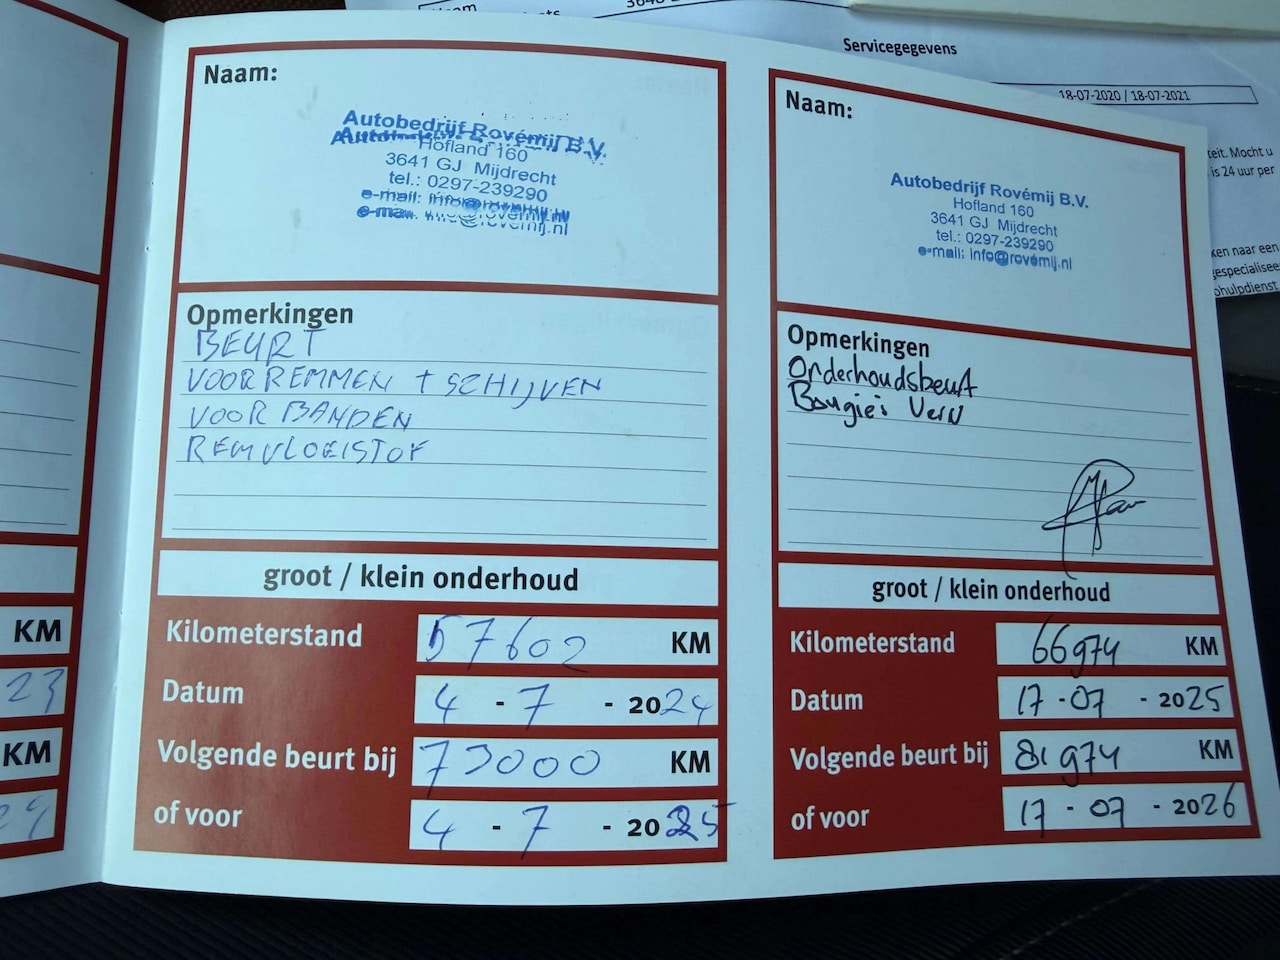 Servicegegevens
18-07-2020 / 18-07-2021
teit. Mocht u
is 24 uur per
ken naar een
gespecialisee
ohulpdienst
KM
23
KM
24
Naam:
Autobedrijf Rovémij B.V.
Hofland 160
3641 GJ Mijdrecht
tel.: 0297-239290
e-mail: info@rovémij.nl
e-mail: info@rovémij.nl
Opmerkingen
BEURT
VOORREMMEN + SCHIJVEN
VOOR BANDEN
REMVLOEISTOF
groot / klein onderhoud
Kilometerstand 57602 KM
Datum 4 - 7 - 2024
Volgende beurt bij 73000 KM
of voor 4 - 7 - 2025
Naam:
Autobedrijf Rovémij B.V.
Hofland 160
3641 GJ Mijdrecht
tel.: 0297-239290
e-mail: info@rovémij.nl
Opmerkingen
Onderhoudsbeurt
Bougies Verv
groot / klein onderhoud
Kilometerstand 66974 KM
Datum 17 - 07 - 2025
Volgende beurt bij 81974 KM
of voor 17 - 07 - 2026